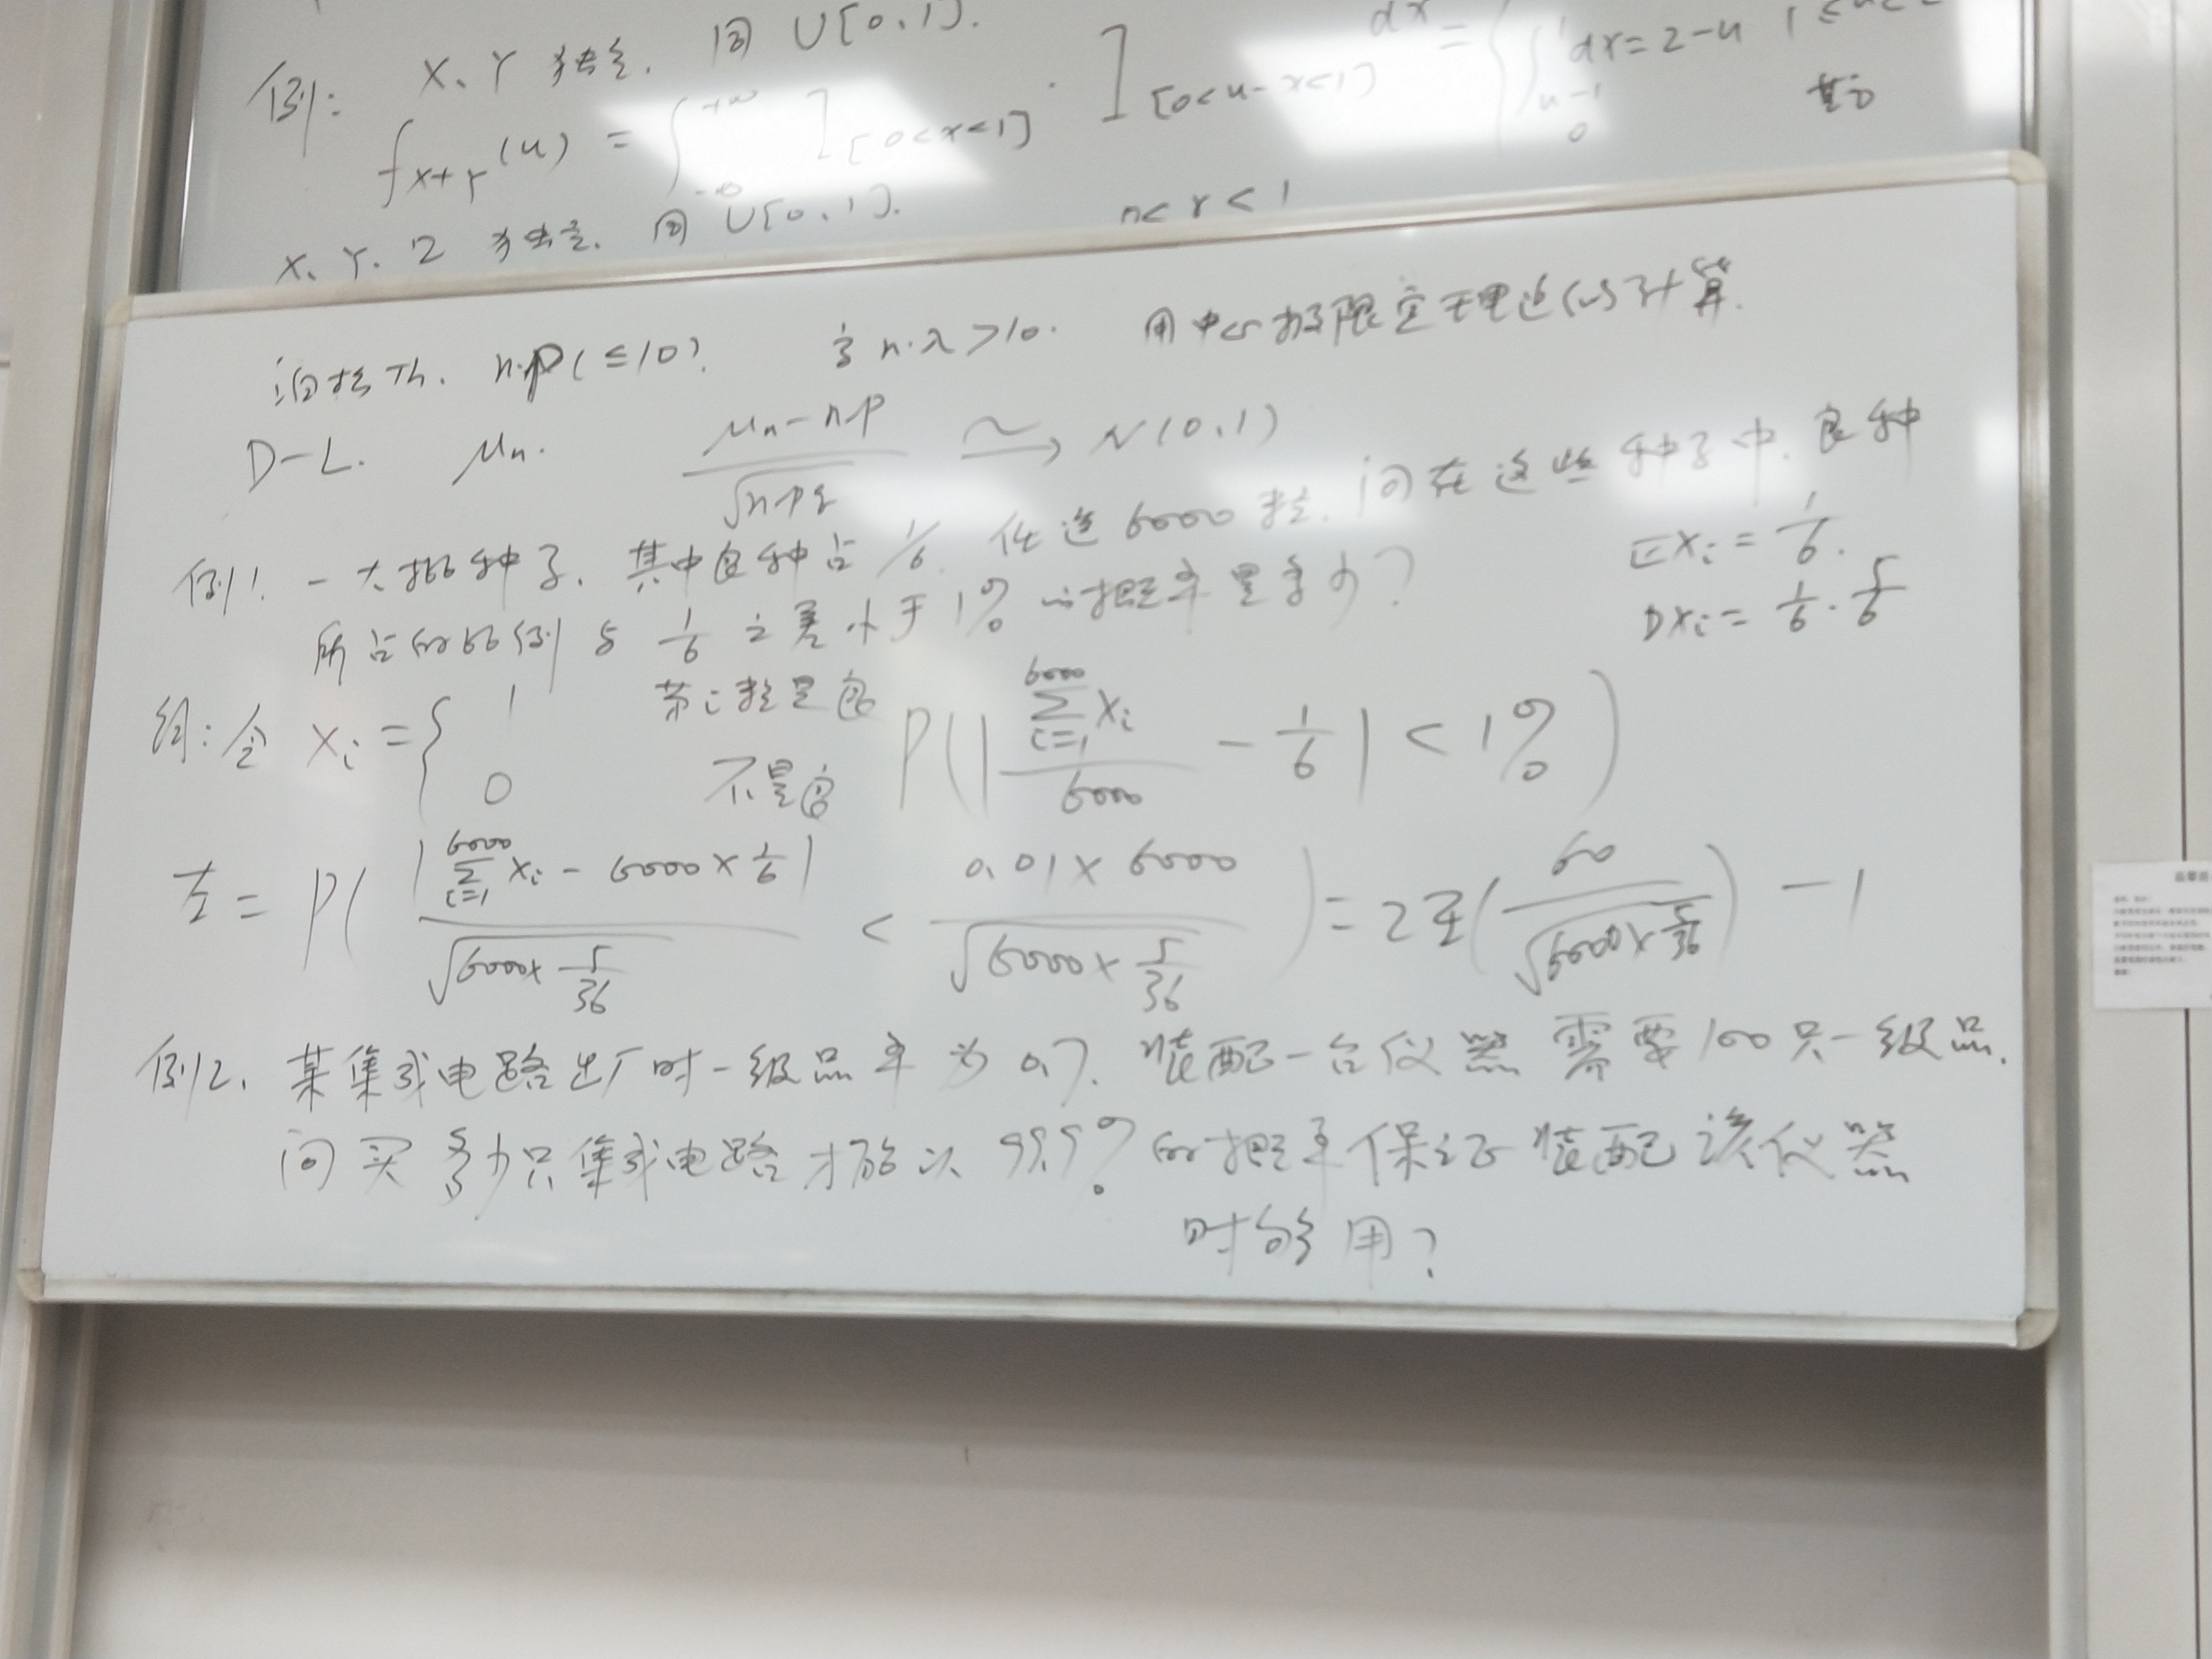 例: X、Y 独立. 同 U[0,1].
f_{X+Y}(u) = ∫_{-∞}^{+∞} I_{[0<x<1]} · I_{[0<u-x<1]} dx = { ∫_{u-1}^{1} dx = 2-u 1≤u<2
0 其它
X、Y、Z 独立. 同 U[0,1]. 0<x<1
泊松Th. n·p(≤10)? 若 n·λ>10. 用中心极限定理近似计算.
D-L. μn. (μn-np)/√(npq) ~→ N(0,1)
例1. 一大批种子、其中良种占1/6. 任选6000粒. 问在这些种子中. 良种
所占的比例与 1/6 之差小于1%的概率是多少?
EXi = 1/6.
DXi = 1/6 · 5/6
解: 令 Xi = { 1 第i粒是良
0 不是良
P(|∑_{i=1}^{6000} Xi / 6000 - 1/6| < 1%)
左 = P( |∑_{i=1}^{6000} Xi - 6000×1/6| / √(6000×5/36) < 0.01×6000 / √(6000×5/36) ) = 2Φ( 60 / √(6000×5/36) ) - 1
例2、某集成电路出厂时一级品率为0.7. 装配一台仪器需要100只一级品.
问买多少只集成电路才能以99.9%的概率保证装配该仪器
时够用?